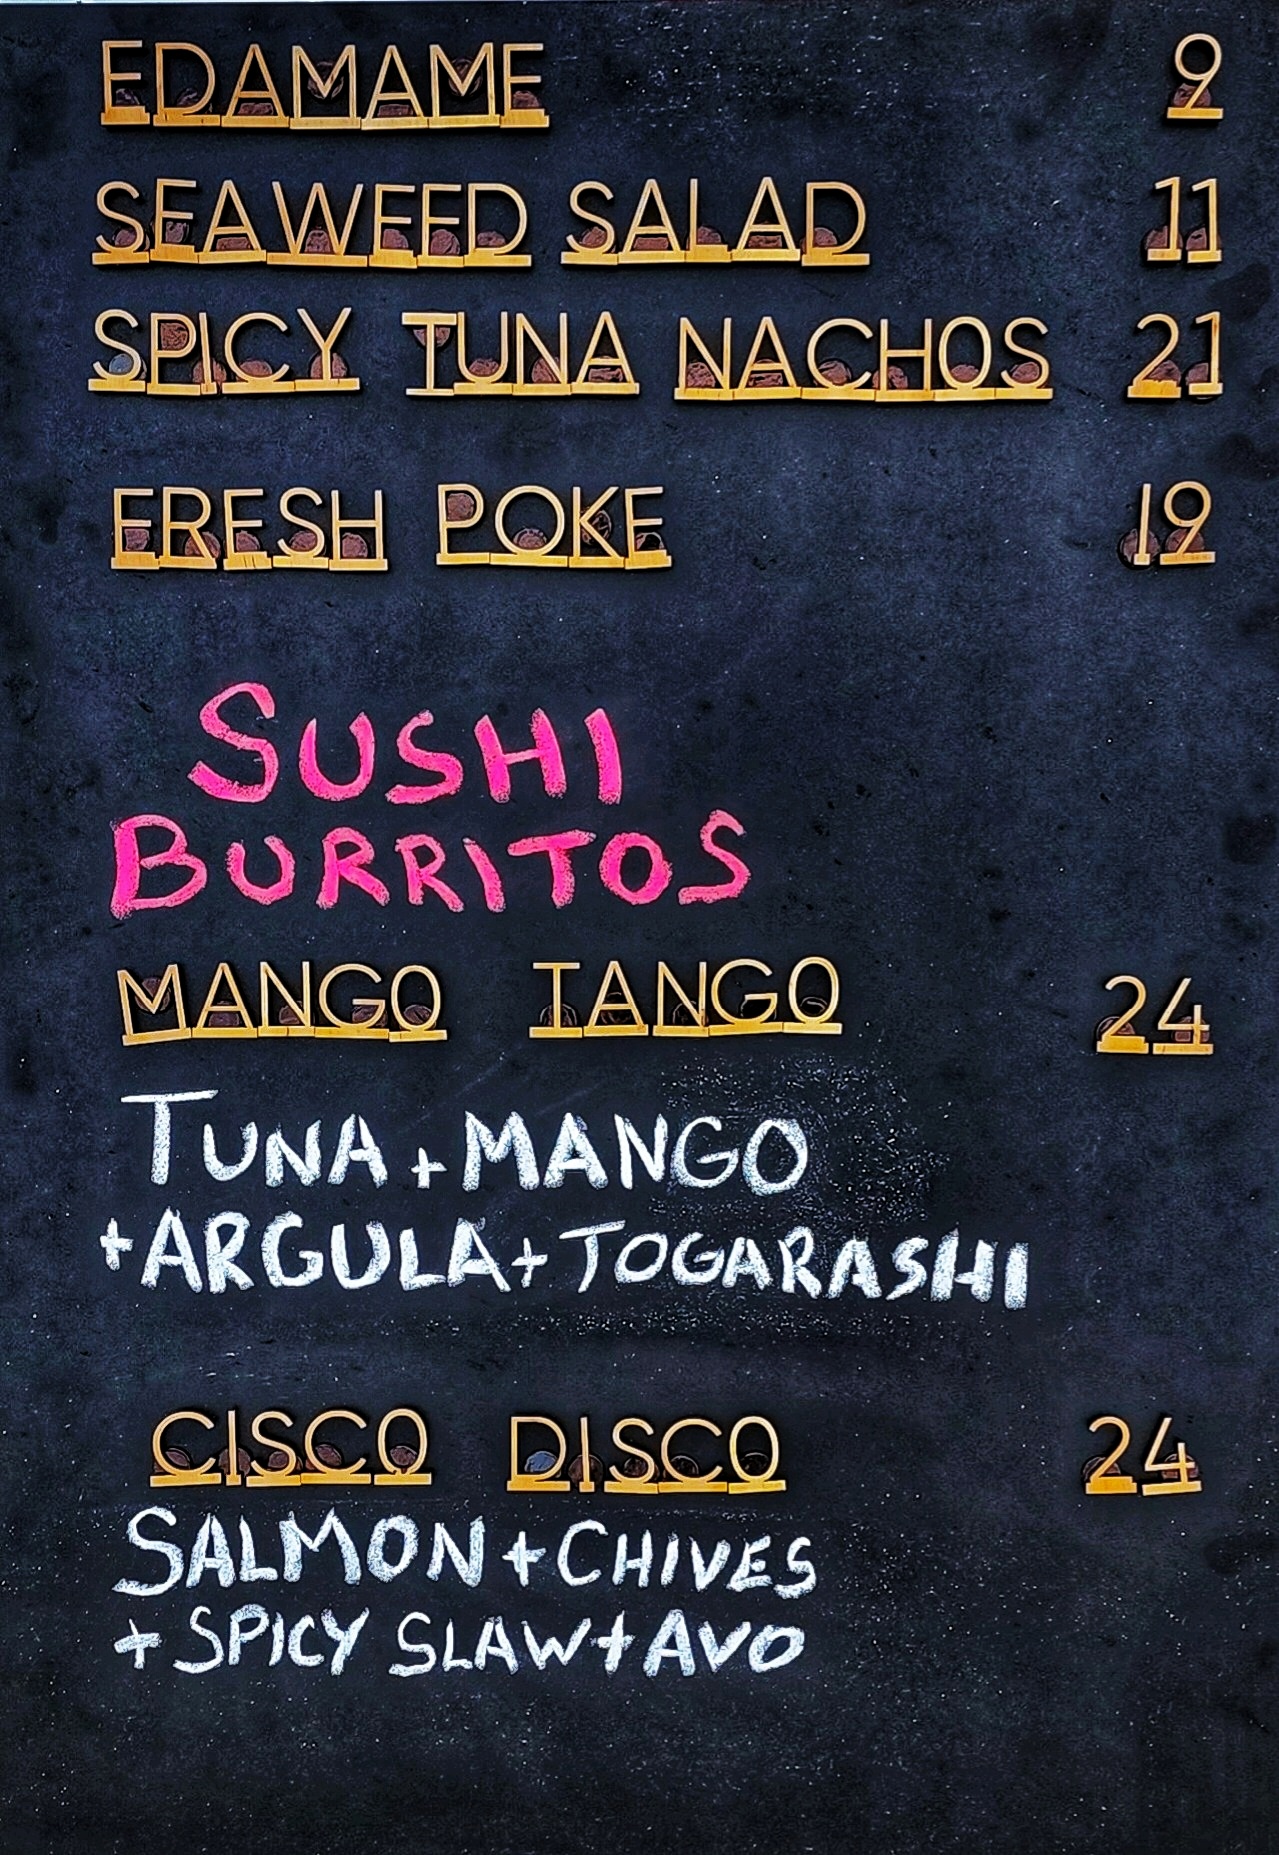 EDAMAME 9
SEAWEED SALAD 11
SPICY TUNA NACHOS 21
FRESH POKE 19
SUSHI
BURRITOS
MANGO TANGO 24
TUNA + MANGO
+ ARGULA + TOGARASHI
CISCO DISCO 24
SALMON + CHIVES
+ SPICY SLAW + AVO